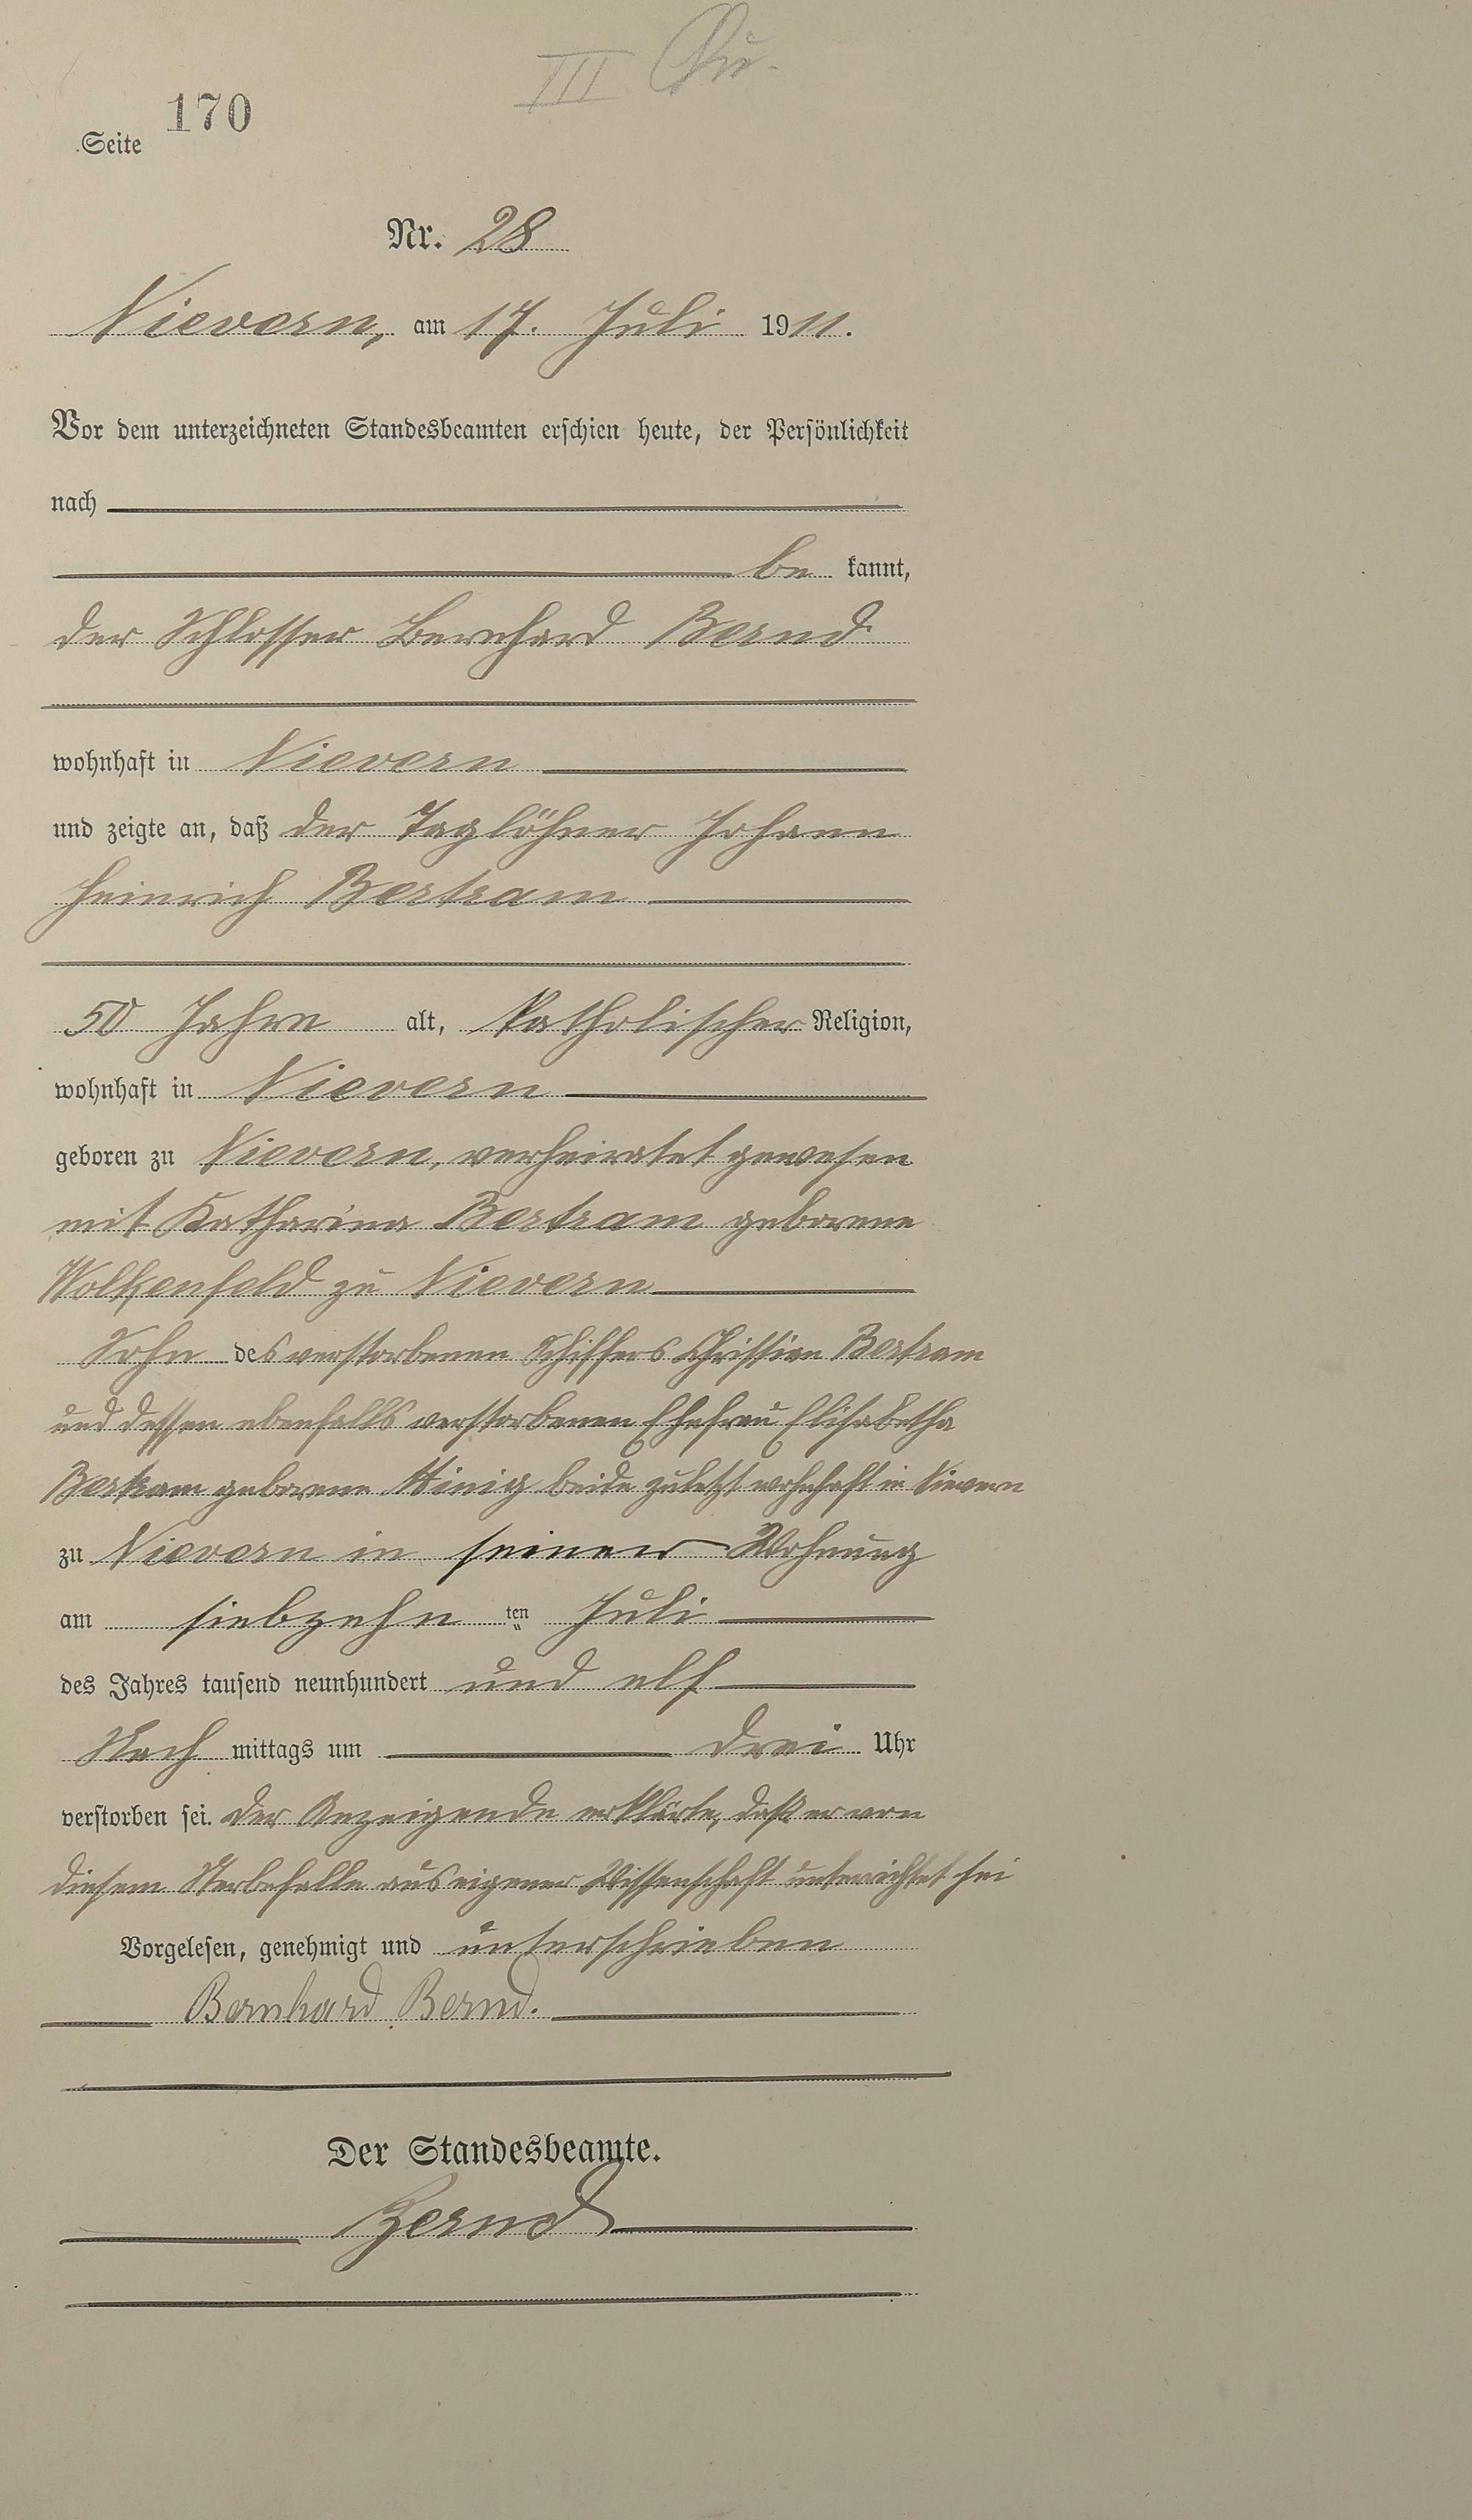 III Qu.
170
Seite
Nr. 28
Nievern, am 17. Juli 1911.
Vor dem unterzeichneten Standesbeamten erschien heute, der Persönlichkeit
nach
be kannt,
der Schlosser Bernhard Bernd
wohnhaft in Nievern
und zeigte an, daß der Taglöhner Johann
Heinrich Bertram
50 Jahre alt, katholischer Religion,
wohnhaft in Nievern
geboren zu Nievern, verheiratet gewesen
mit Katharina Bertram geborene
Wolkenfeld zu Nievern
Sohn des verstorbenen Schiffers Christian Bertram
und dessen ebenfalls verstorbenen Ehefrau Elisabetha
Bertram geborene beide zuletzt wohnhaft in Nievern
zu Nievern in seiner Wohnung
am siebzehn ten Juli
des Jahres tausend neunhundert und elf
Nach mittags um drei Uhr
verstorben sei. Der Anzeigende erklärte, daß er von
diesem Sterbefalle aus eigener Wissenschaft unterrichtet sei
Vorgelesen, genehmigt und unterschrieben
Bernhard Bernd.
Der Standesbeamte.
Bernd